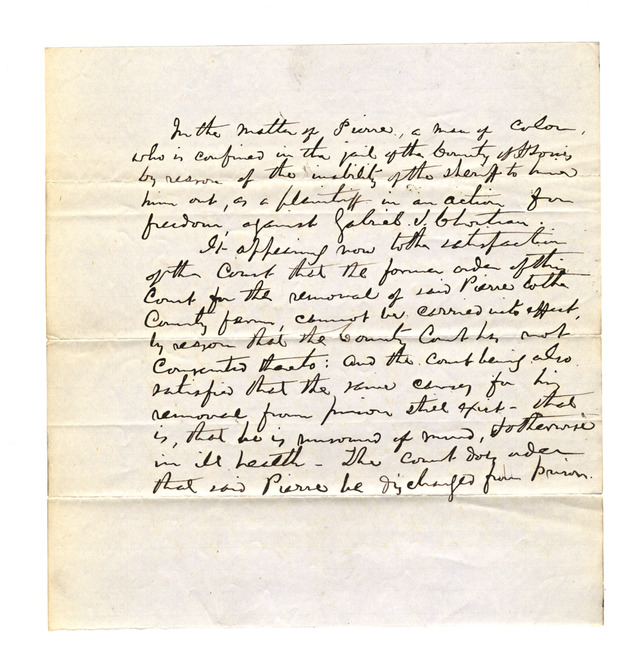 In the matter of Pierre, a man of color,
who is confined in the jail of the County of St Louis
by reason of the inability of the sheriff to hire
him out, as a plaintiff in an action for
freedom, against Gabriel S. Chouteau.
It appearing now to the satisfaction
of the Court that the former order of this
Court for the removal of said Pierre to the
County farm, cannot be carried into effect,
by reason that the County Court has not
Consented thereto: and the court being also
satisfied that the same causes for his
removal from prison still exist - that
is, that he is unsound of mind, & otherwise
in ill health - The court doth order
that said Pierre be discharged from prison.